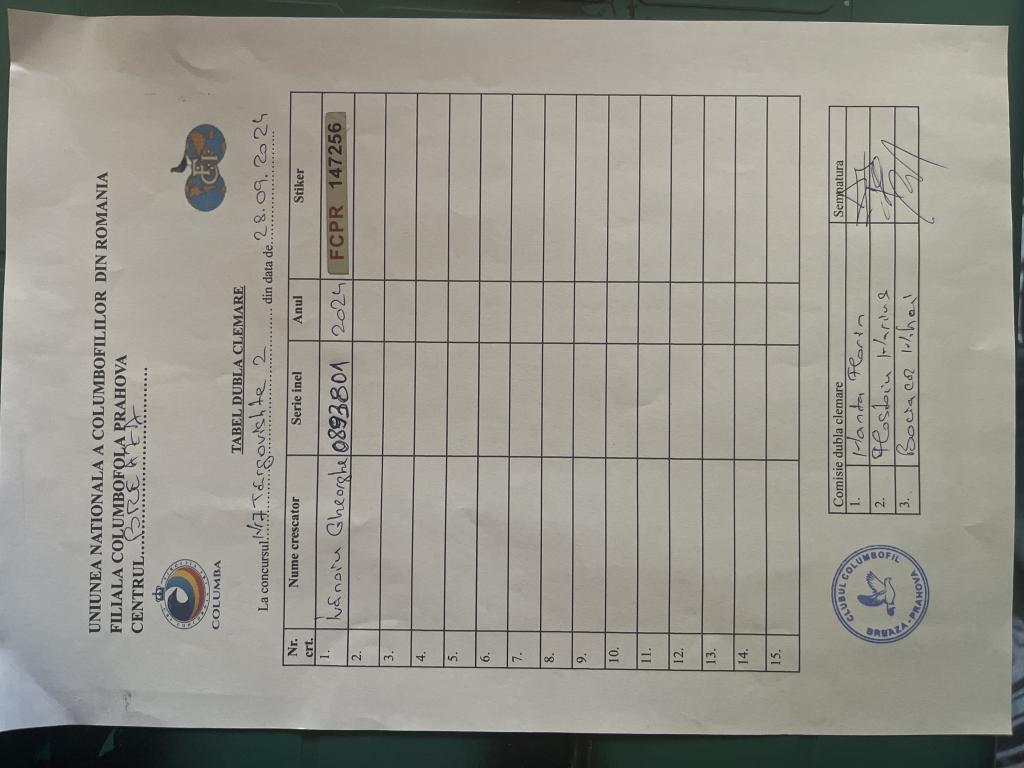 UNIUNEA NATIONALA A COLUMBOFILILOR DIN ROMANIA
FILIALA COLUMBOFOLA PRAHOVA
CENTRUL...BREAZA...
COLUMBA
FCI
TABEL DUBLA CLEMARE
La concursul Nr7 Târgovishte 2 din data de 28.09.2024
Nr. crt. Nume crescator Serie inel Anul Stiker
1. Ivănoiu Gheorghe 0893801 2024 FCPR 147256
2.
3.
4.
5.
6.
7.
8.
9.
10.
11.
12.
13.
14.
15.
Comisie dubla clemare Semnatura
1. Manta Florin
2. Plostoiu Marius
3. Mihai
CLUBUL COLUMBOFIL
BREAZA-PRAHOVA